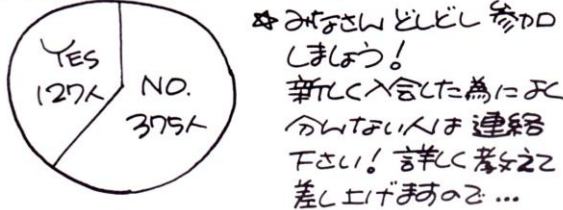 YES
127人
NO.
375人
☆みなさんどしどし参加
しましょう!
新しく入会した為によく
分んない人は連絡
下さい!詳しく教えて
差し上げますので…